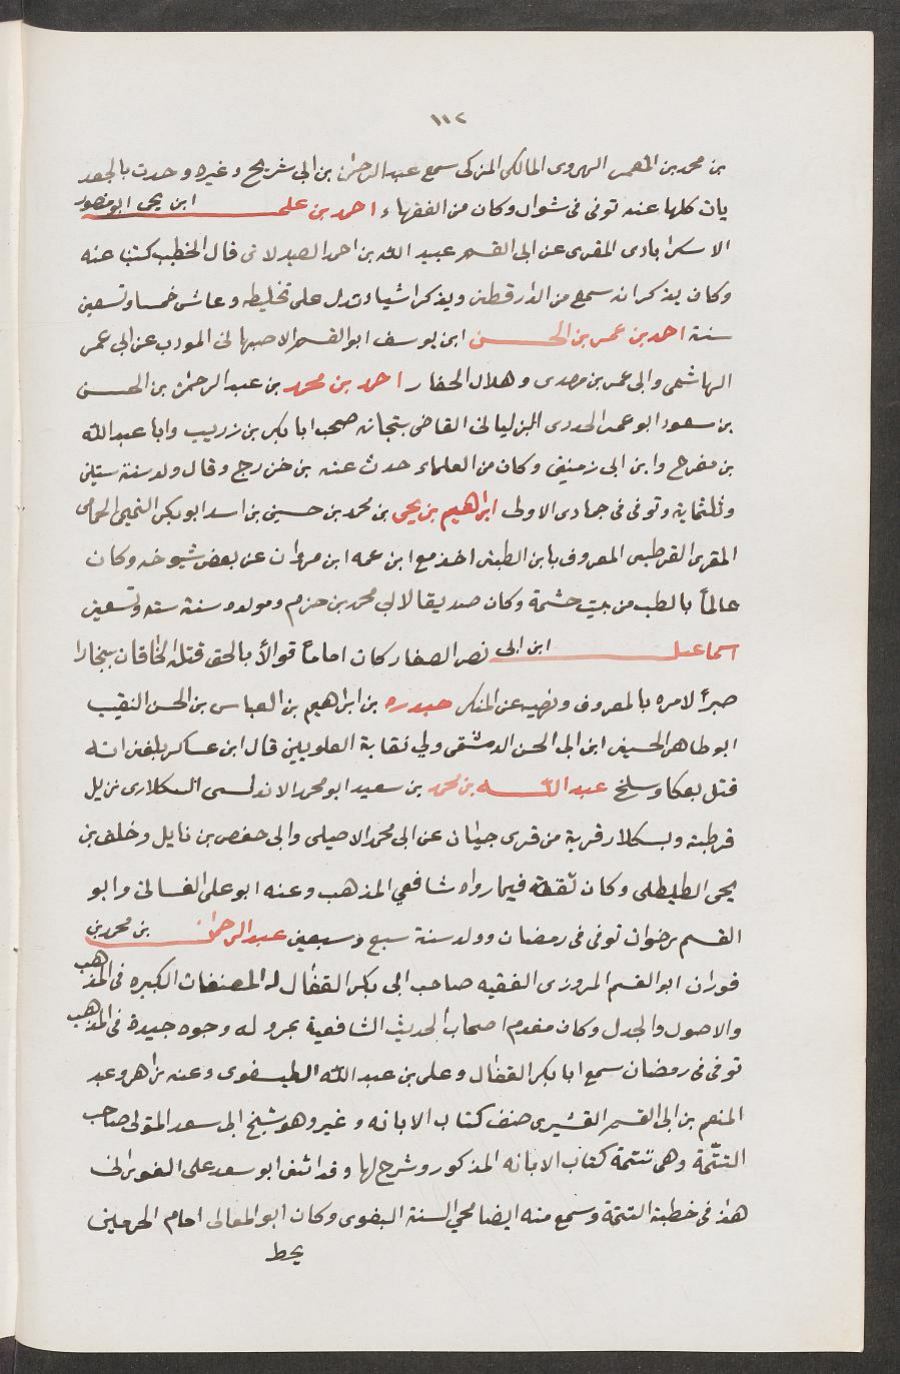 ١١٢
بن محمد بن المعمر الهروى المالكى المزكى سمع عبد الرحمن بن ابى شريح وغيره وحدث بالجعد
يات كلها عنه توفى فى شوال وكان من الفقهاء احمد بن على ابن يحى ابو منصور
الاسكرابادى المقرى عن ابى القسم عبيد الله بن احمد الصيدلانى قال الخطيب كتبنا عنه
وكان يذكر انه سمع من الدارقطنى ويذكر اشياء تدل على تخليطه وعاش خمسا وتسعين
سنة احمد بن عمر بن الحسن ابن يوسف ابو القسم الاصبهانى المودب عن ابى عمر
الهاشمى وابى عمر بن مهدى وهلال الحفار احمد بن محمد بن عبد الرحمن بن الحسن
بن سعود ابو عمر الجذامى البزليانى القاضى بتجانه صحب ابا بكر بن زريب وابا عبد الله
بن مفرح وابن ابى زمنين وكان من العلماء حدث عنه بن خزرج وقال ولد سنة ستين
وثلثماية وتوفى فى جمادى الاولى ابراهيم بن يحى بن محمد بن حسين بن اسد ابو بكر التميمى الحمامى
المقرى القرطبى المعروف بابن الطبنى اخذ مع ابن عمه ابن مروان عن بعض شيوخه وكان
عالماً بالطب من بيت حشمة وكان صديقا لابى محمد بن حزم ومولده سنة سته وتسعين
اسماعيل ابن ابى نصر الصفار كان اماماً قوالاً بالحق قتله الخاقان ببخارا
صبراً لامره بالمعروف ونهيه عن المنكر حيدره بن ابراهيم بن العباس بن الحسن النقيب
ابو طاهر الحسينى ابن ابى الحسن الدمشقى ولى نقابة العلويين قال ابن عساكر بلغنى انه
قتل بعكا وسلخ عبد الله بن محمد بن سعيد ابو محمد الاندلسى البسكلارى نزيل
قرطبة وبسكلار قرية من قرى جيان عن ابى محمد الاصيلى وابى حفص بن نابل وخلف بن
يحى الطليطلى وكان ثقة فيما رواه شافعي المذهب وعنه ابو على الغسانى وابو
القسم برضوان توفى فى رمضان وولد سنة سبع وسبعين عبد الرحمن بن محمد بن
فوران ابو القسم المروزى الفقيه صاحب ابى بكر القفال له المصنفات الكبيره فى المذهب
والاصول والجدل وكان مقدم اصحاب الحديث الشافعية بمرو له وجوه جيدة فى المذهب
توفى فى رمضان سمع ابا بكر القفال وعلى بن عبد الله الطيسفونى وعنه زاهر وعبد
المنعم بن ابى القسم القشيرى صنف كتاب الابانه وغيره وهو شيخ ابى سعد المتولى صاحب
التتمة وهى تتمة كتاب الابانه المذكور وشرح لها وقد اثنى ابو سعد على الفورانى
هذا فى خطبة التتمة وسمع منه ايضا محي السنة البغوى وكان ابو المعالى امام الحرمين
يحط